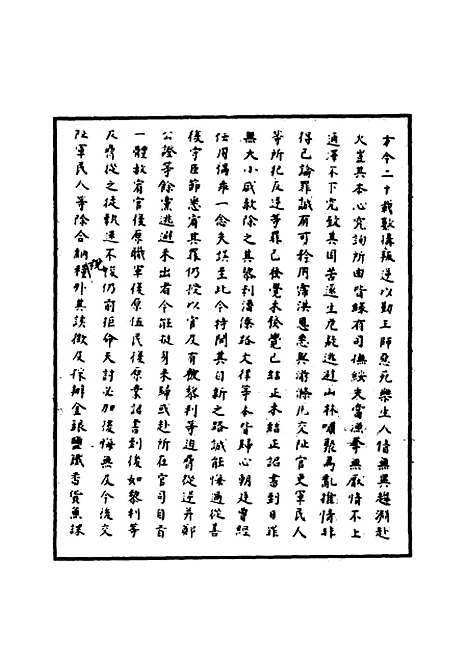 方今二十載數構叛逆以勤王師惡死樂生人情無異趨溺赴
火豈其本心究詢所由皆緣有司撫綏失當漁摹無厭情不上
通澤不下究致其困苦遂生危疑逃避山林嘯聚為亂推情非
得已論罪誠有可矜用霈洪恩悉與滌凡交阯官吏軍民人
等所犯反逆等罪已發覺未發覺已結正未結正詔書到日罪
無大小咸赦除之其黎利潘僚路文律等本皆歸心朝廷曾經
任用偶乖一念失誤至此今特開其自新之路誠能悔過從善
復守臣節悉宥其罪仍授以官及有被黎利等迫脅從逆并鄭
公證等餘黨逃避未出者今能挺身來歸或赴所在官司自首
一體赦宥官復原職軍復原伍民復原業詔書到後如黎利等
及脅從之徒執迷不悛仍前拒命天討必加後悔無及今後交
阯軍民人等除合納稅糧外其該徵及採辦金銀鹽鐵香貨魚課